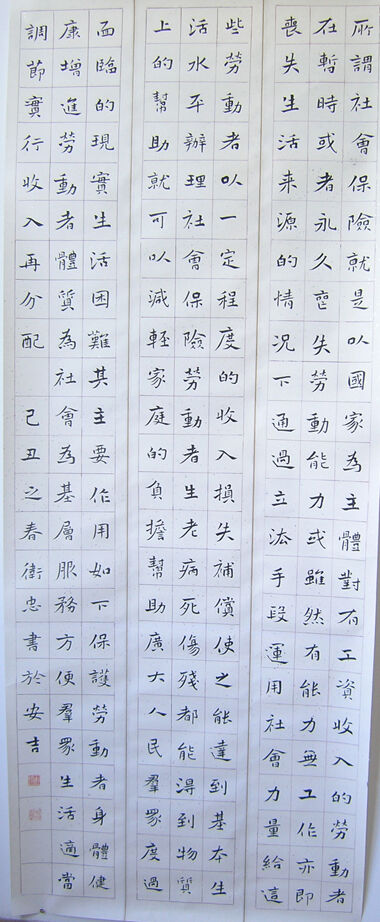 所謂社會保險就是以國家為主體對有工資收入的勞動者
在暫時或者永久喪失勞動能力或雖然有能力無工作亦即
喪失生活来源的情况下通過立法手段運用社會力量給這
些勞動者以一定程度的收入損失補償使之能達到基本生
活水平辦理社會保險勞動者生老病死傷殘都能得到物質
上的幫助就可以減輕家庭的負擔幫助廣大人民羣眾度過
面臨的現實生活困難其主要作用如下保護勞動者身體健
康增進勞動者體質為社會為基層服務方便羣眾生活適當
調節實行收入再分配 己丑之春衛忠書於安吉